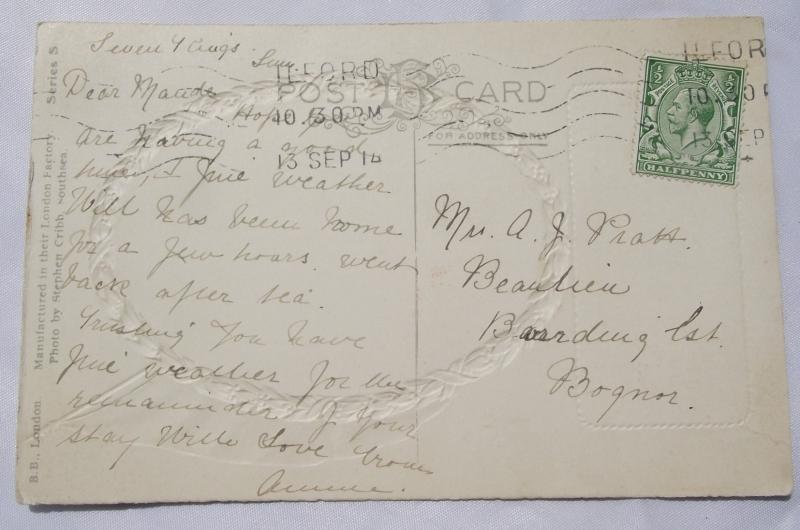 Seven Kings
ILFORD
10.30 PM
13 SEP 14
POST CARD
FOR ADDRESS ONLY
ILFOR
13 SEP
½ ½
HALFPENNY
Dear Maude
Hope you
are having a good
time, & fine weather
Will has been home
for a few hours. went
back after tea.
Trusting you have
fine weather for the
remainder of your
stay With Love from
Annie.
Mrs. A. J. Pratt.
Beaulieu
Boarding Est.
Bognor.
B.B., London Manufactured in their London Factory. Series S.
Photo by Stephen Cribb, Southsea.